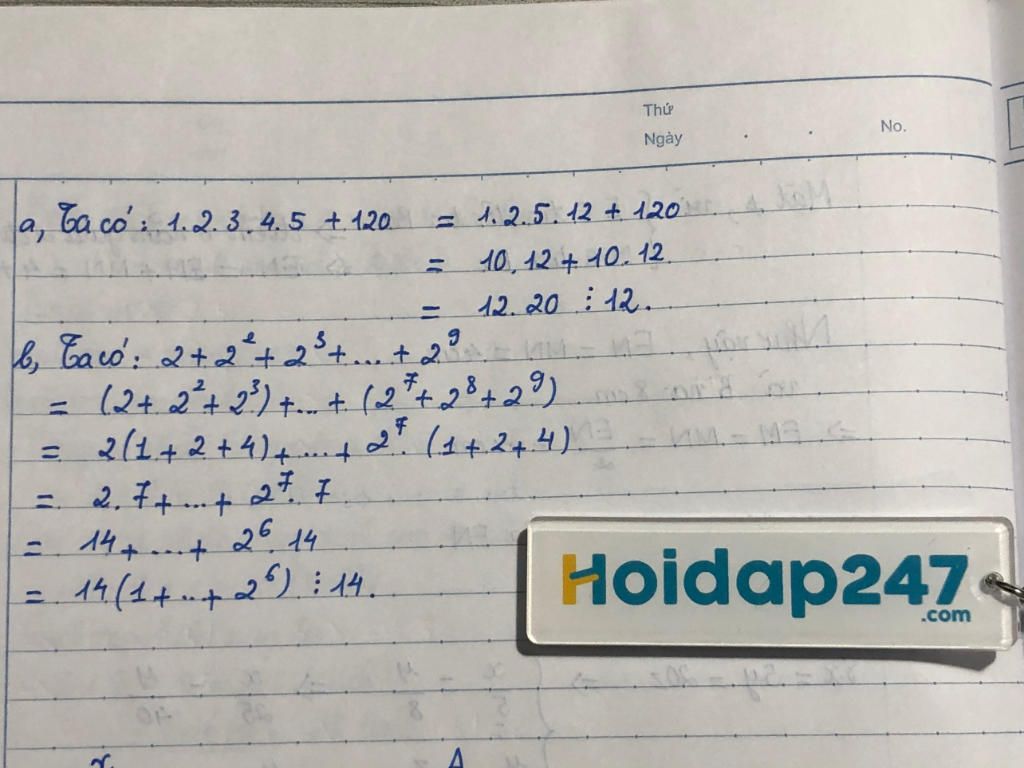 Thứ
Ngày . . No.
a, Ta có: 1.2.3.4.5 + 120 = 1.2.5.12 + 120
= 10.12 + 10.12
= 12.20 ⋮ 12.
b, Ta có: 2 + 2² + 2³ + ... + 2⁹
= (2 + 2² + 2³) + ... + (2⁷ + 2⁸ + 2⁹)
= 2(1 + 2 + 4) + ... + 2⁷. (1 + 2 + 4)
= 2.7 + ... + 2⁷. 7
= 14 + ... + 2⁶. 14
= 14(1 + .. + 2⁶) ⋮ 14.
Hoidap247
.com